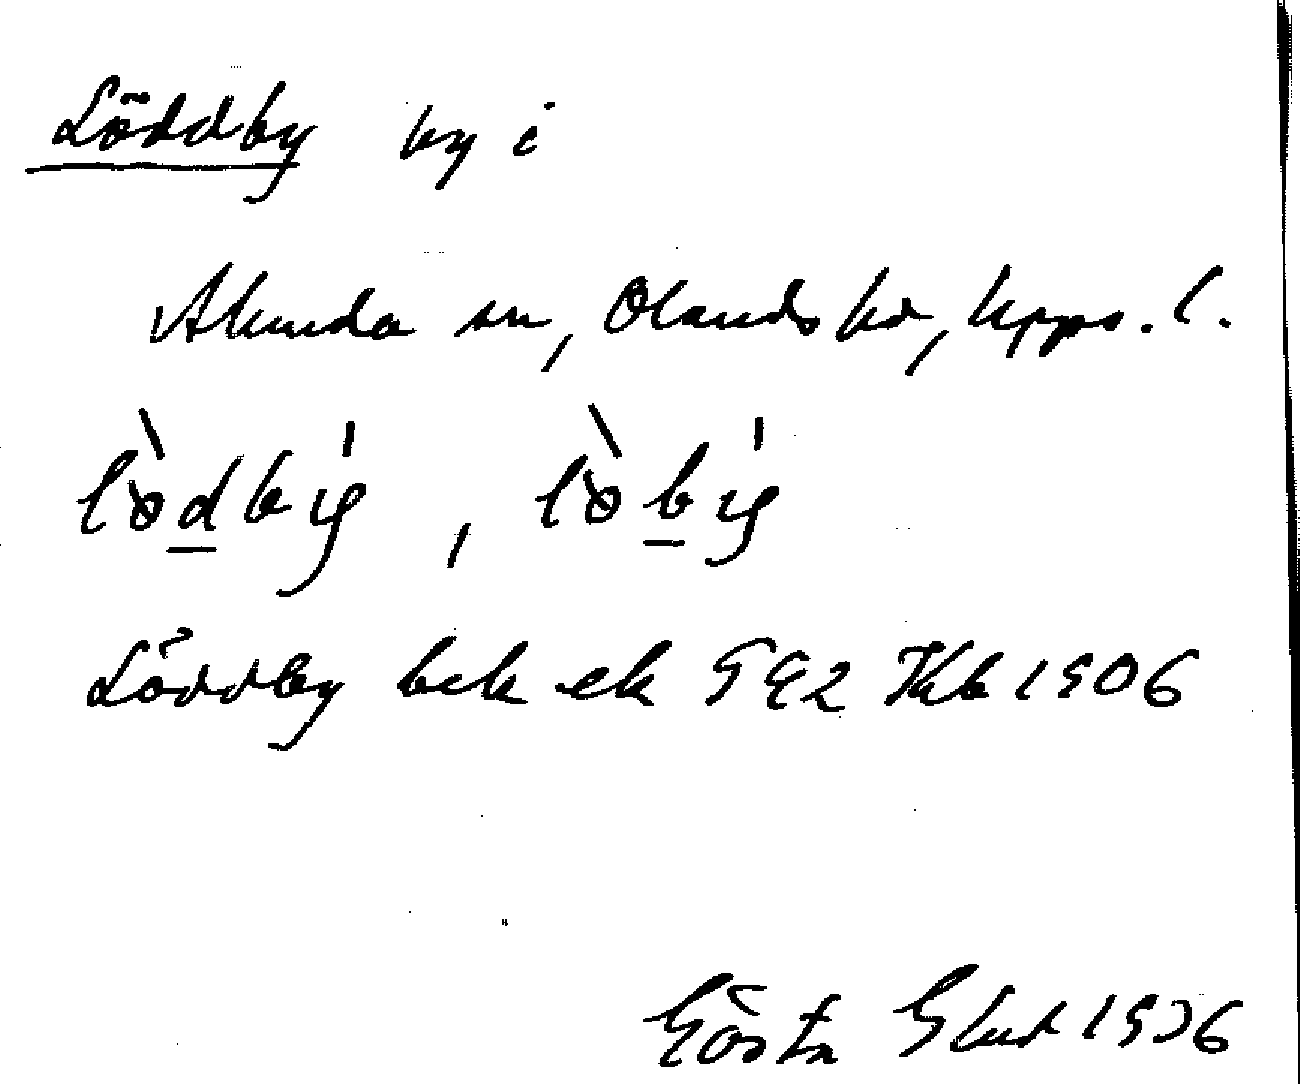 Löddby by i
Alunda sn, Olands hd, Upps. l.
lòdbý, lòbý
Löddby bek ek 592 Kb 1906
Gösta 1936